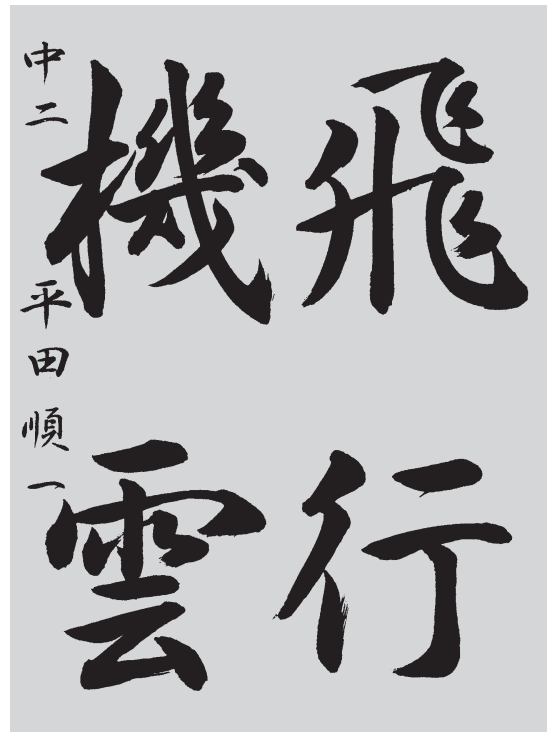 飛行
機雲
中二 平田順一